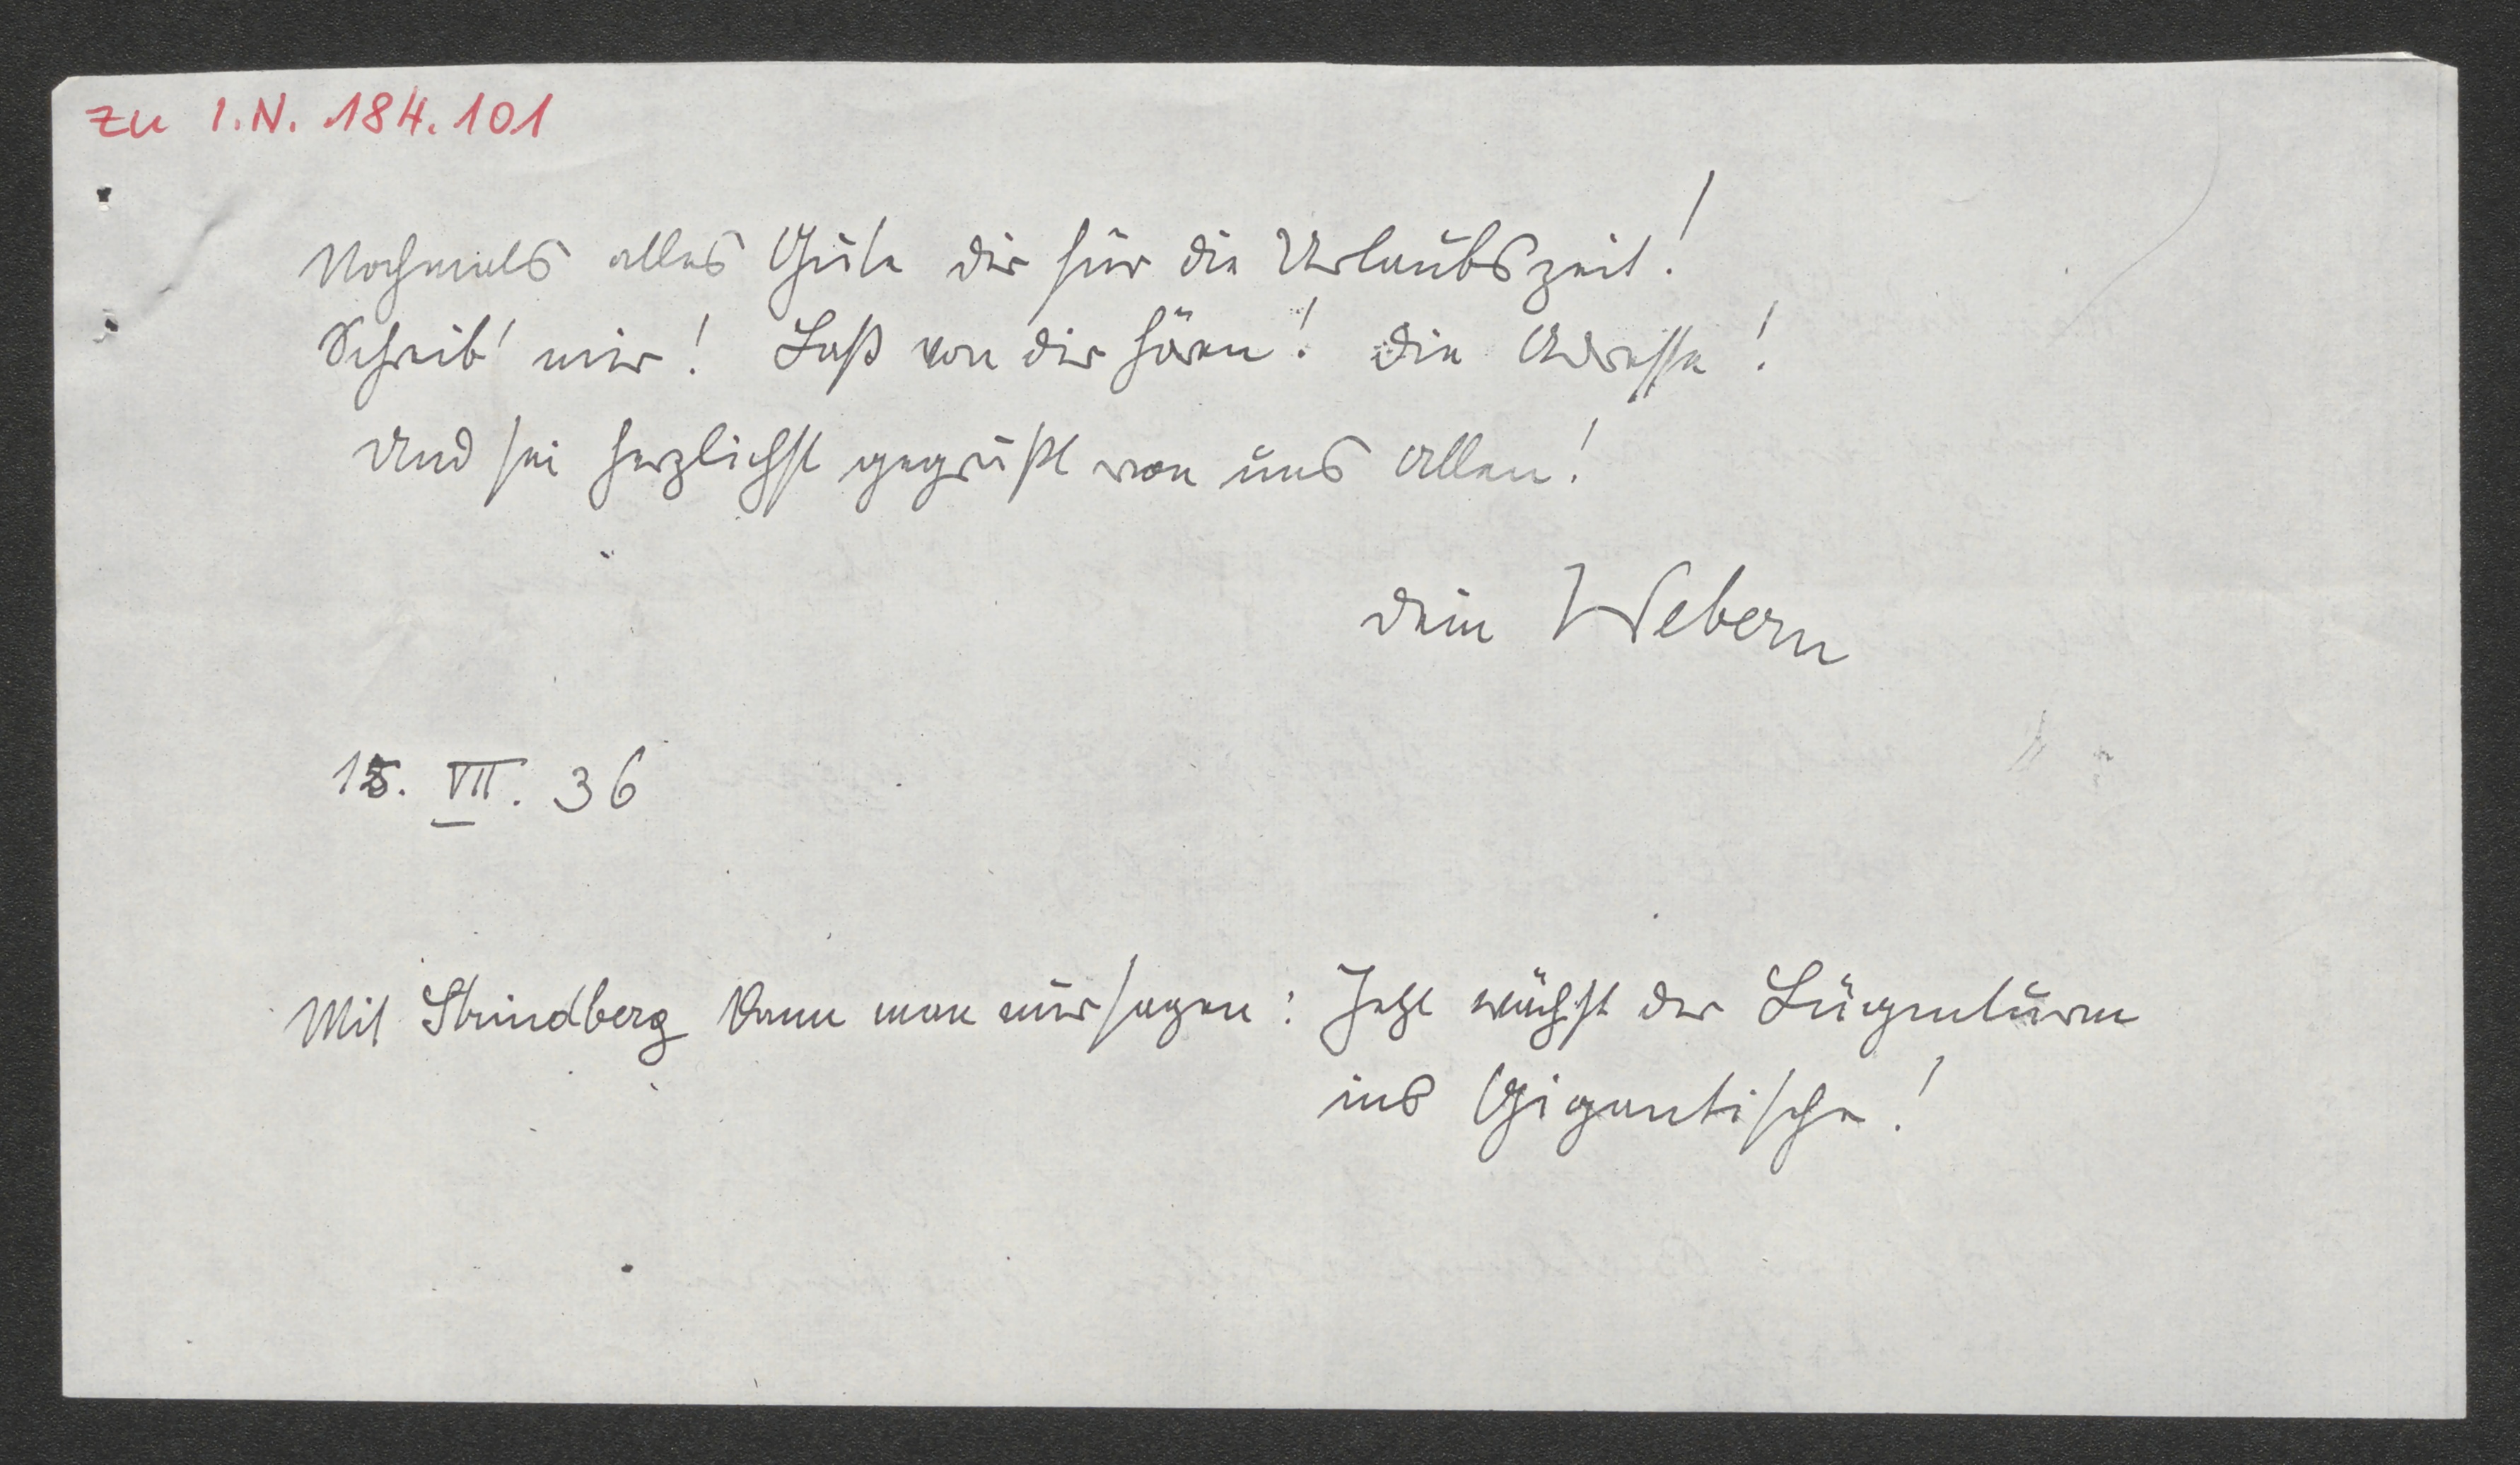 zu I.N. 184.101
Nochmals alles Gute dir für die Urlaubszeit!
Schreib' mir! Laß von dir hören! Die Adresse!
Und sei herzlichst gegrüßt von uns allen!
Dein Webern
15. VII. 36
Mit Strindberg kann man nur sagen: Jetzt wächst der Lügenturm
ins Gigantische!